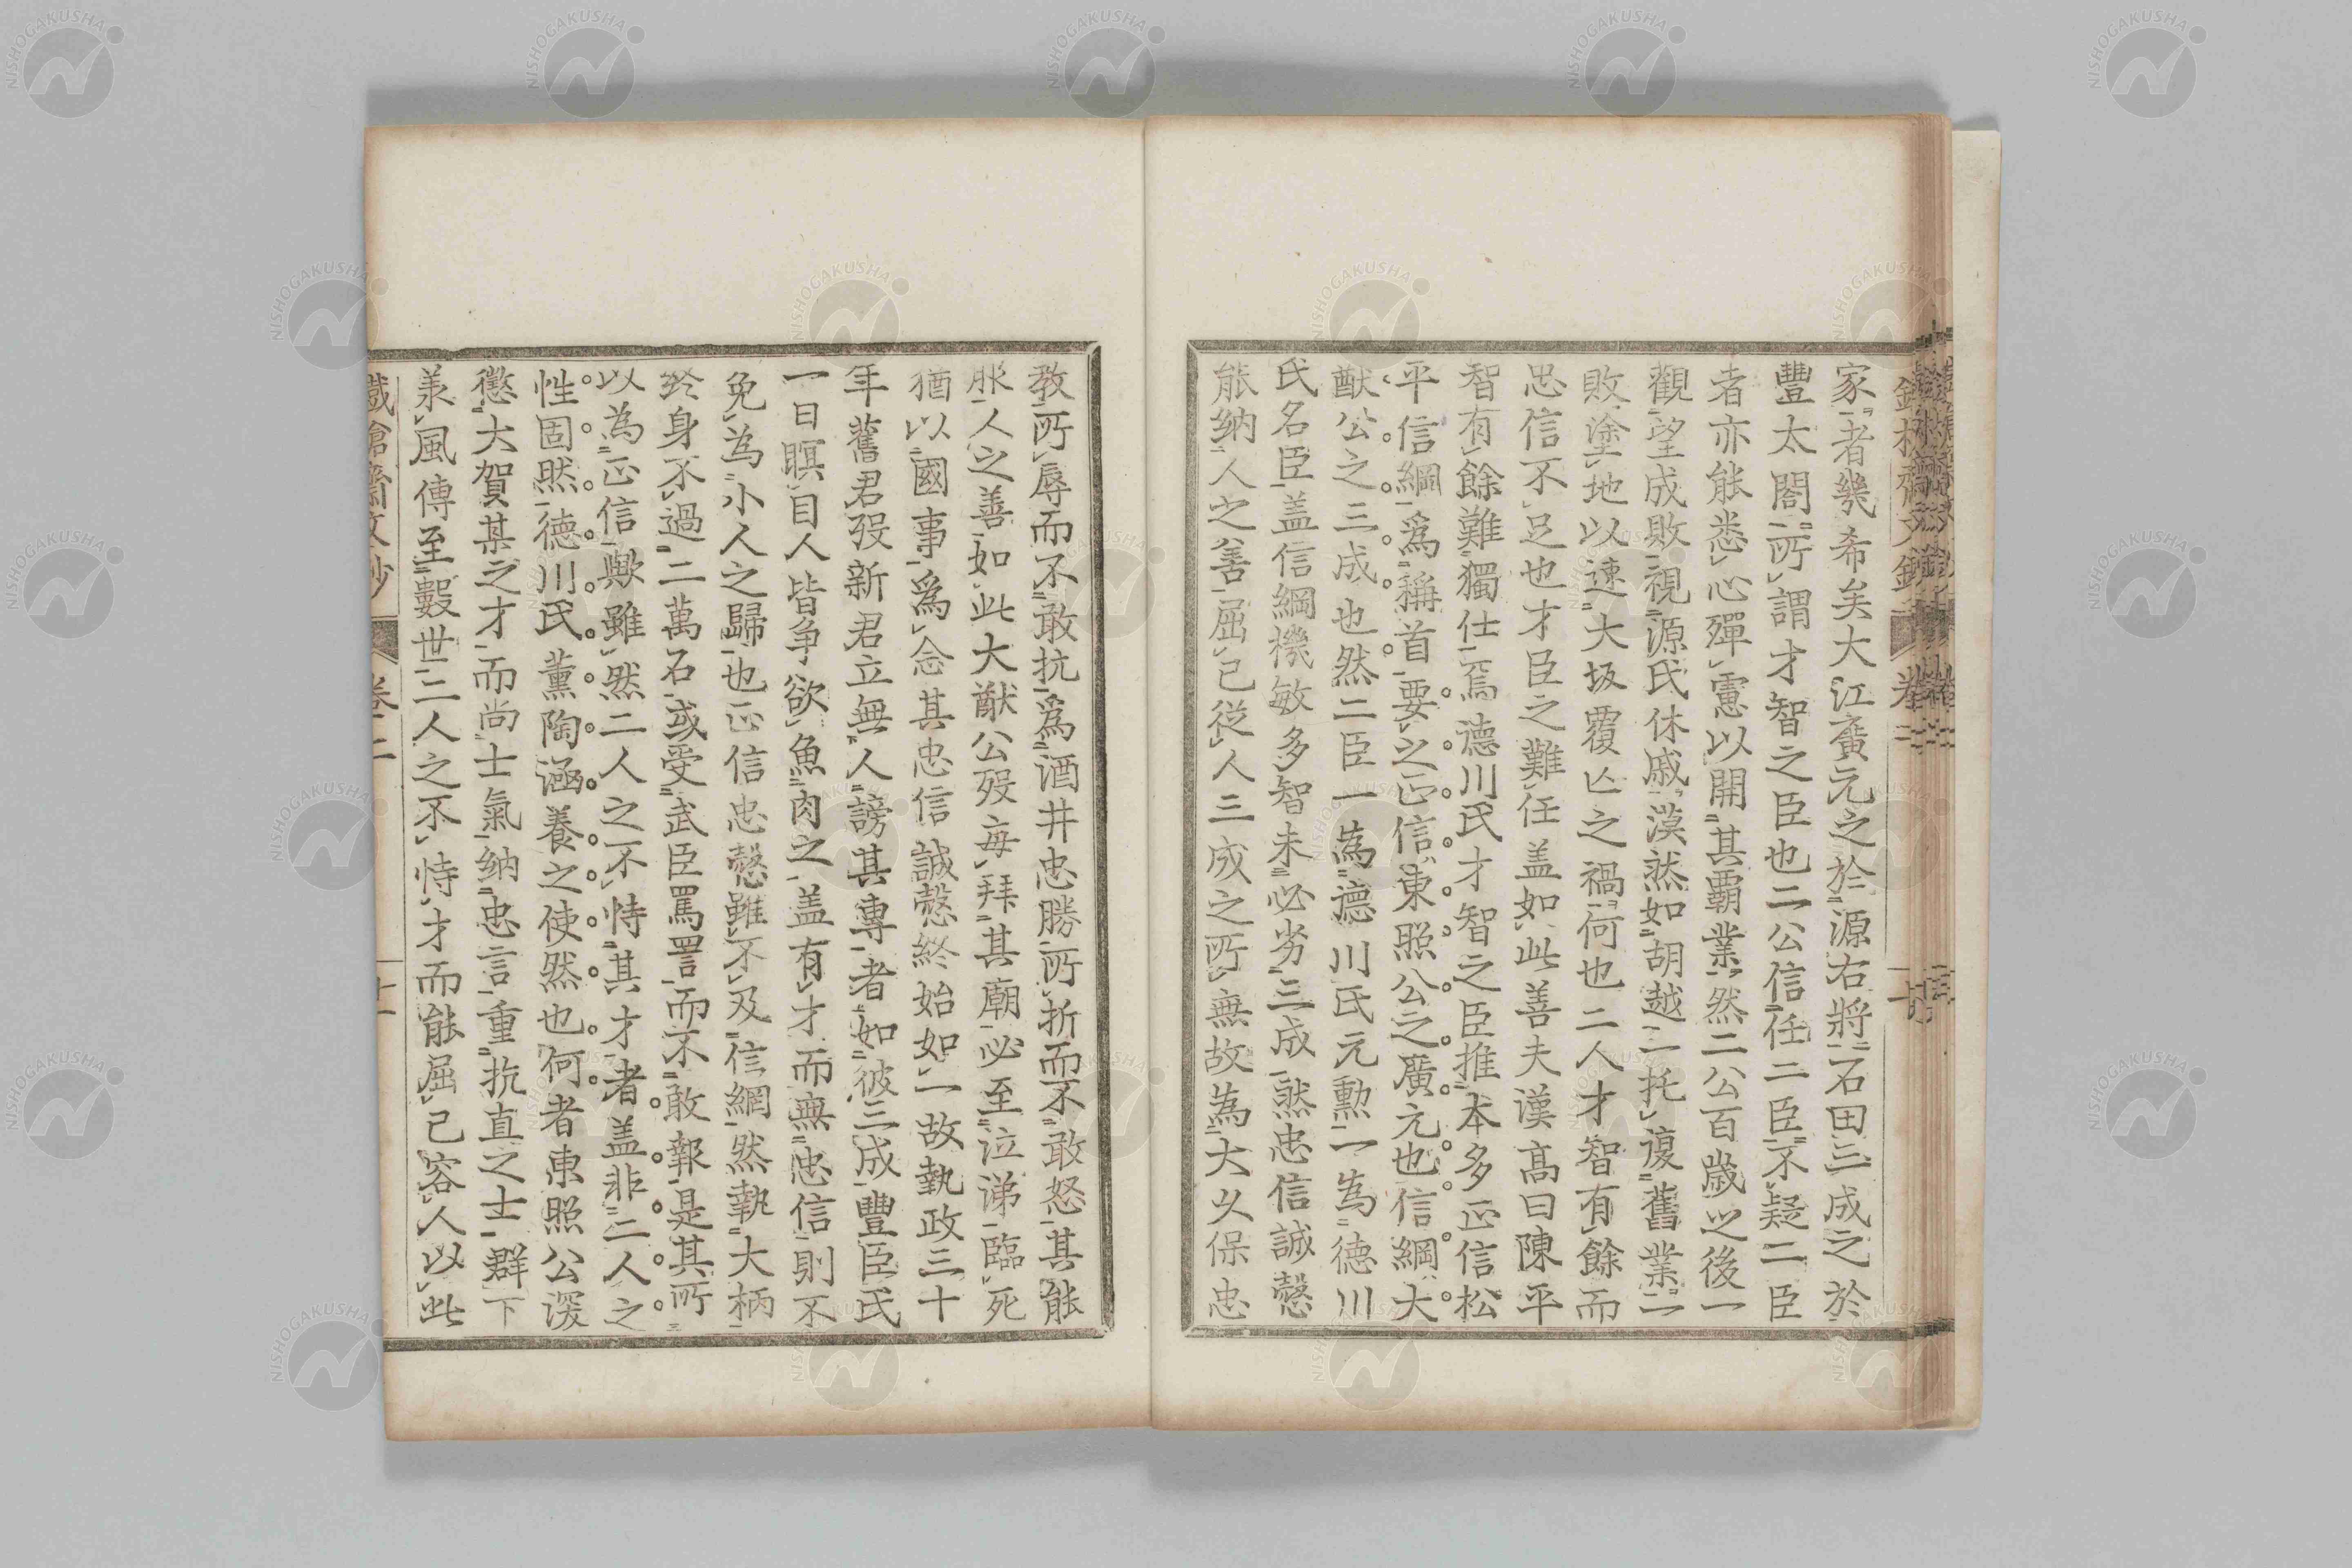 家者幾希矣大江廣元之於源右將石田三成之於
豐太閤所謂才智之臣也二公信任二臣不疑二臣
者亦能悉心殫慮以開其覇業然二公百歳之後一
觀望成敗視源氏休戚漠然如胡越一托復舊業一
敗塗地以速大坂覆亡之禍何也二人才智有餘而
忠信不足也才臣之難任盖如此善夫漢高曰陳平
智有餘難獨仕焉德川氏才智之臣推本多正信松
平信綱爲稱首要之正信東照公之廣元也信綱大
猷公之三成也然二臣一為德川氏元勲一為德川
氏名臣盖信綱機敏多智未必劣三成然忠信誠慤
能納人之善屈己從人三成之所無故為大久保忠
教所辱而不敢抗爲酒井忠勝所折而不敢怒其能
服人之善如此大猷公歿毎拜其廟必至泣涕臨死
猶以國事爲念其忠信誠慤終始如一故執政三十
年舊君歿新君立無人謗其專者如彼三成豐臣氏
一日瞑目人皆争欲魚肉之盖有才而無忠信則不
免為小人之歸也正信忠慤雖不及信綱然執大柄
終身不過二萬石或受武臣罵詈而不敢報是其所
以為正信歟雖然二人之不恃其才者盖非二人之
性固然德川氏薫陶涵養之使然也何者東照公深
懲大賀某之才而尚士氣納忠言重抗直之士群下
羕風傳至數世二人之不恃才而能屈己容人以此
鐵槍齋文鈔 卷二 十一